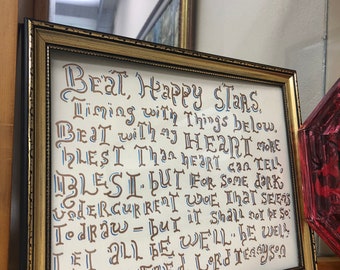 Beat, Happy Stars,
Timing with things below,
Beat with my HEART more
blest than heart can tell,
BLEST, BUT FOR some dark
undercurrent woe that seems
to draw – but it shall not be so:
Let all be well, be well.
Lord Tennyson